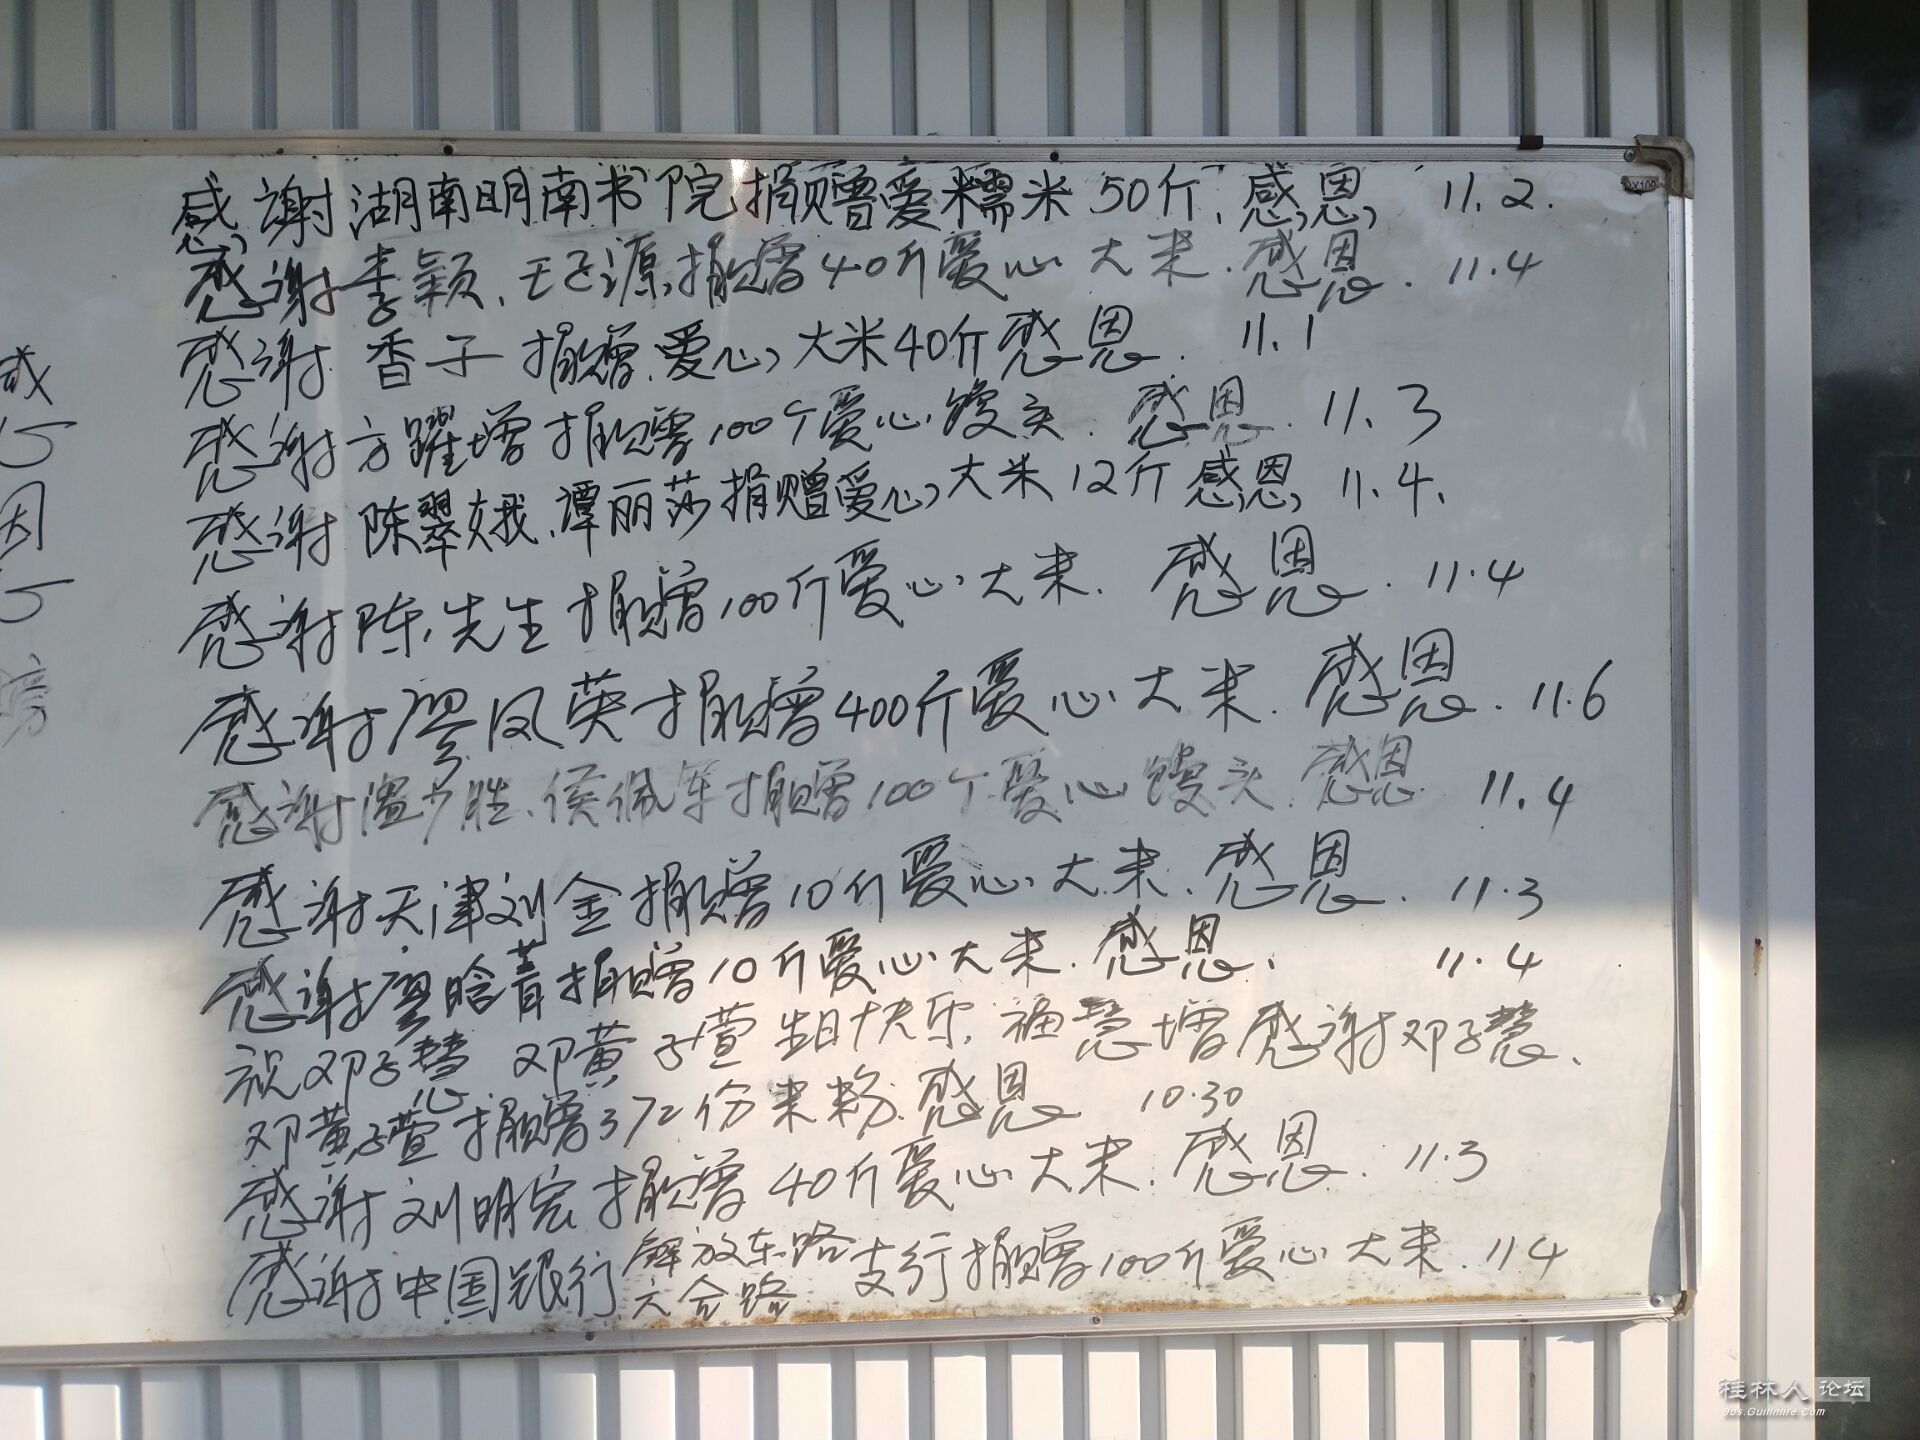 感恩榜
感谢湖南明南书院捐赠爱糯米50斤、感恩 11.2.
感谢李颖、王子源捐赠40斤爱心大米.感恩. 11.4
感谢香子捐赠爱心大米40斤感恩. 11.1
感谢方跃增捐赠100个爱心馒头.感恩. 11.3
感谢陈翠娥、谭丽莎捐赠爱心大米12斤感恩 11.4.
感谢陈先生捐赠100斤爱心大米.感恩. 11.4
感谢廖凤英捐赠400斤爱心大米.感恩. 11.6
感谢温少胜、侯佩军捐赠100个爱心馒头.感恩 11.4
感谢天津刘金捐赠10斤爱心大米.感恩. 11.3
感谢廖晗菁捐赠10斤爱心大米.感恩. 11.4
祝邓子慧 邓黄子萱生日快乐,福慧增感谢邓子慧、
邓黄子萱捐赠372份米粉.感恩 10.30
感谢刘明宏捐赠40斤爱心大米.感恩. 11.3
感谢中国银行解放东路六合路支行捐赠100斤爱心大米.11.4
DY100
桂林人论坛
bbs.Guilinlife.Com